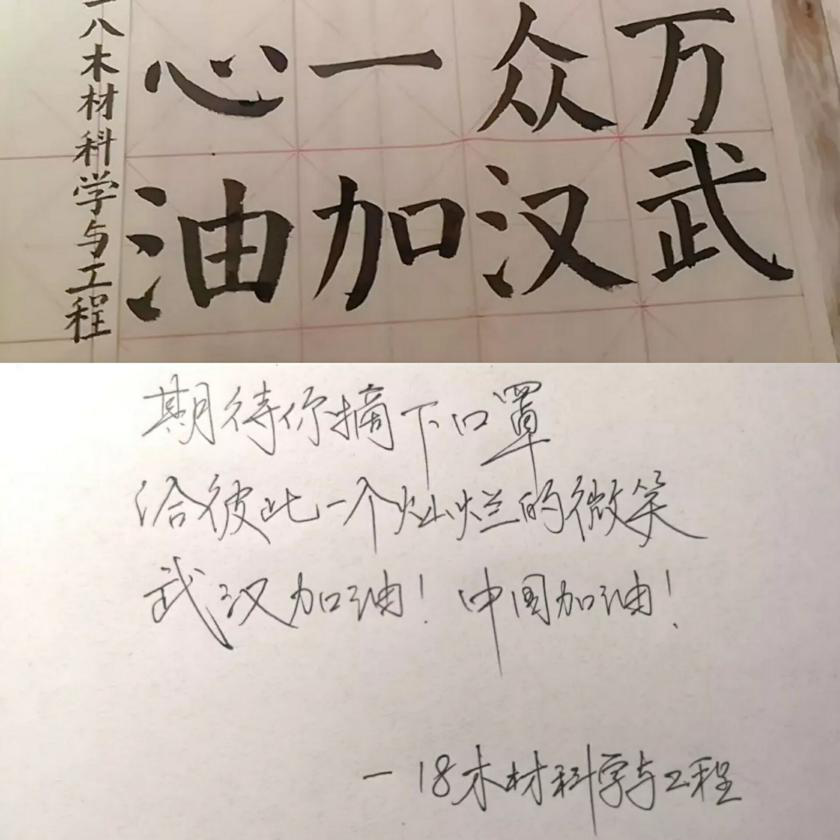 万众一心
武汉加油
一八木材科学与工程
期待你摘下口罩
给彼此一个灿烂的微笑
武汉加油！中国加油！
—18木材科学与工程